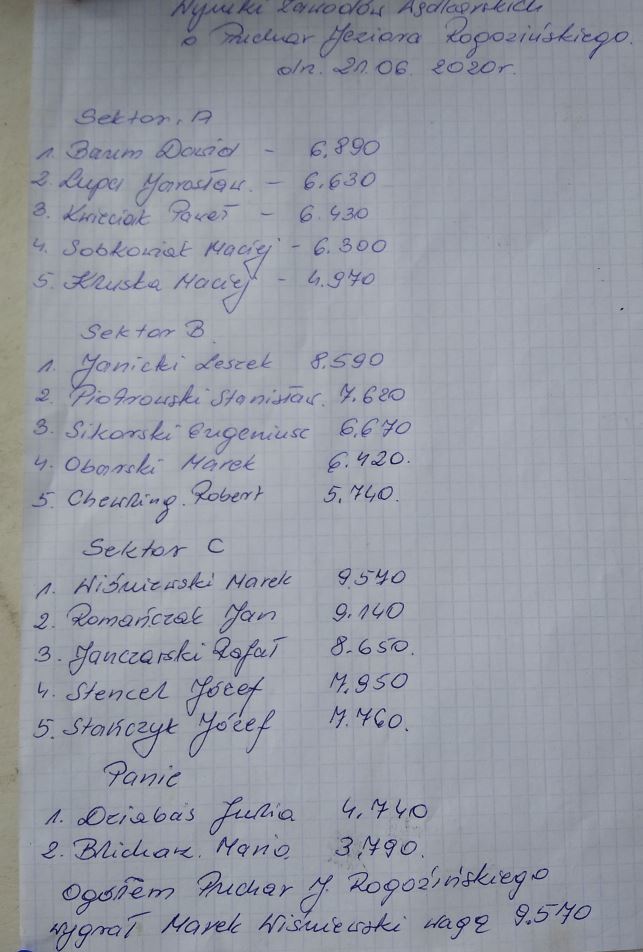 Wyniki Zawodów Wędkarskich
o Puchar Jeziora Rogozińskiego.
dn. 21.06. 2020r.
Sektor. A
1. Baum Dawid - 6.890
2. Lupa Jarosław. - 6.630
3. Kwieciak Paweł - 6.430
4. Sobkowiak Maciej - 6.300
5. Kluska Maciej - 4.970
Sektor B
1. Janicki Leszek 8.590
2. Piotrowski Stanisław. 7.620
3. Sikorski Eugeniusz 6.670
4. Obarski Marek 6.420.
5. Robert 5.740.
Sektor C
1. Wiśniewski Marek 9.570
2. Romańczak Jan 9.140
3. Janczarski Rafał 8.650.
4. Stencel Józef 7.950
5. Stańczyk Józef 7.760.
Panie
1. Dziabas Julia 4.740
2. Maria 3.790.
Ogółem Puchar J. Rogozińskiego
wygrał Marek Wiśniewski wagą 9.570